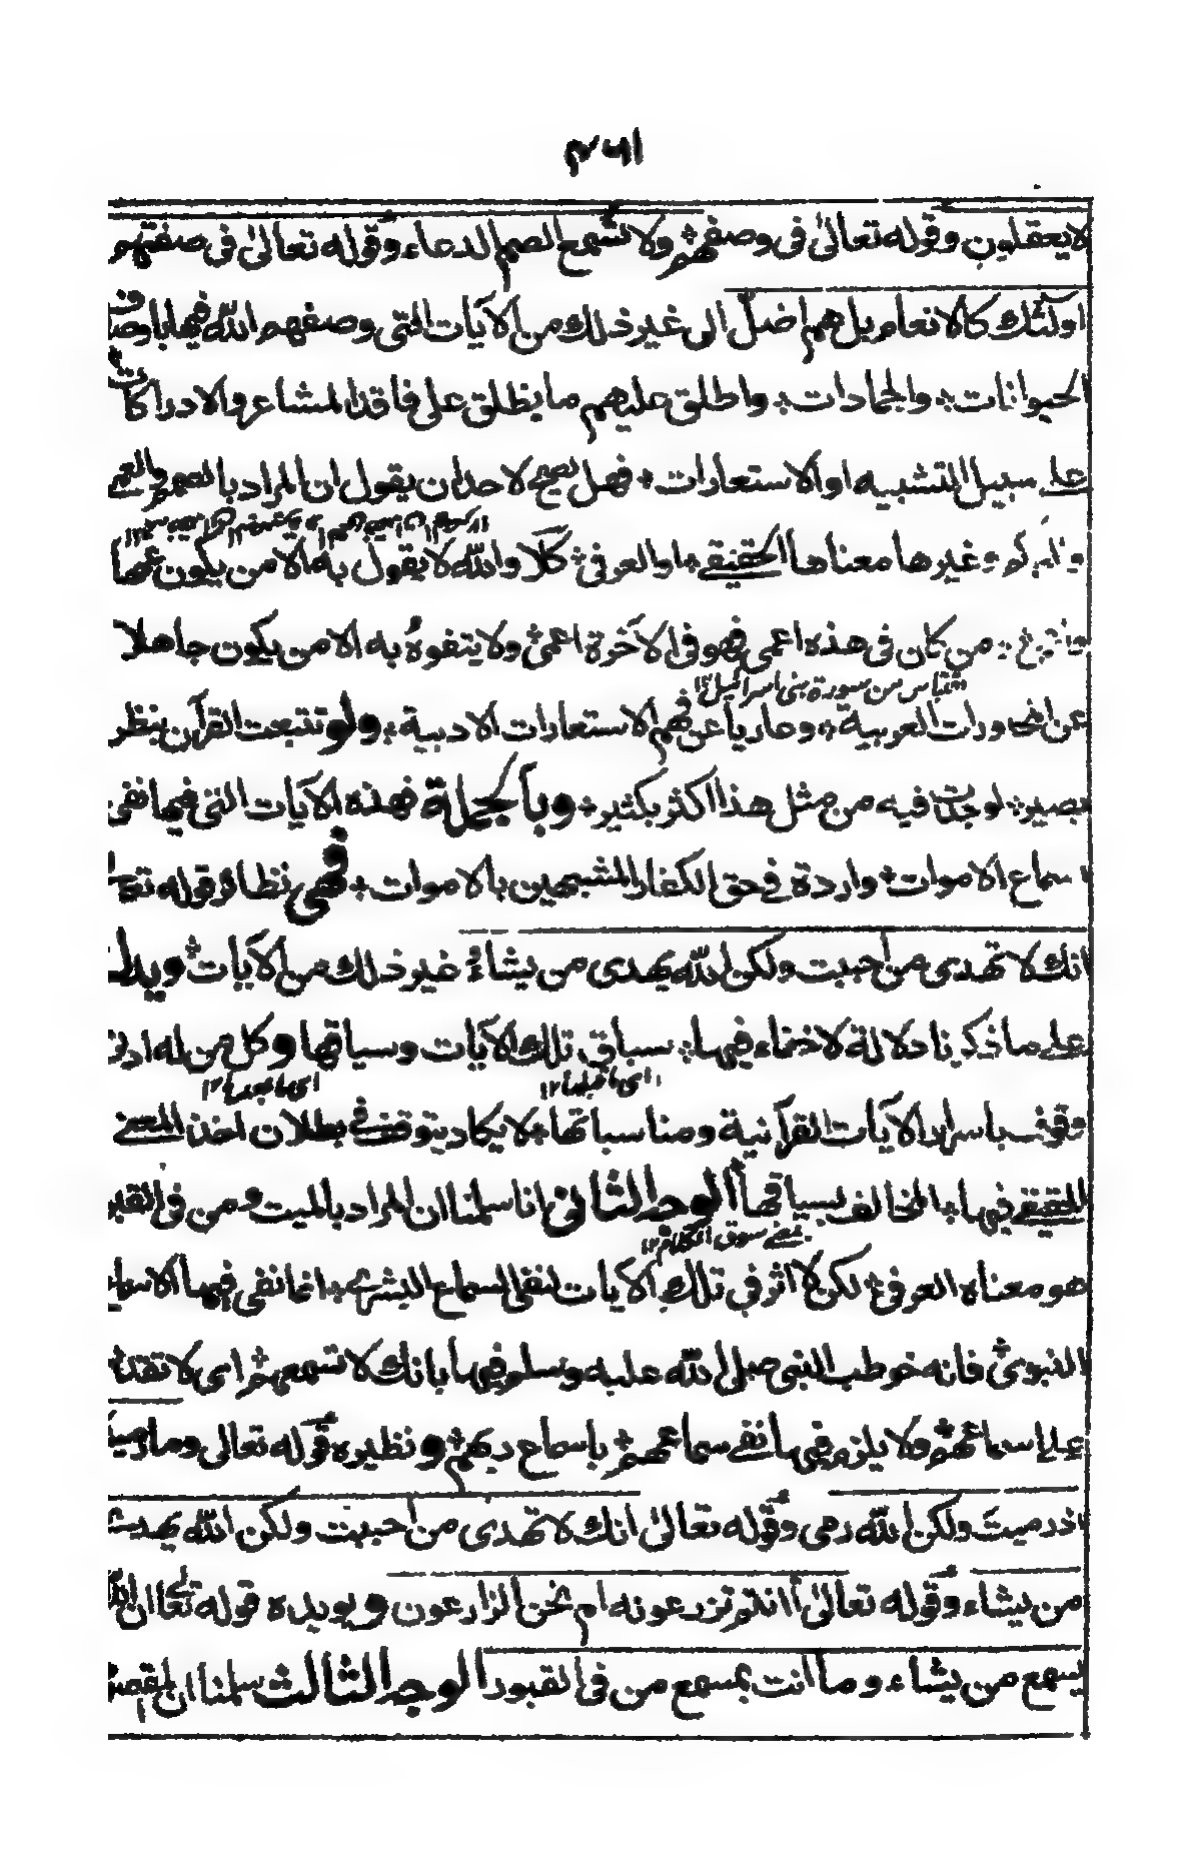 لا يعقلون وقوله تعالىٰ فى وصفهم ولا تسمع الصم الدعاء وقوله تعالىٰ فى صفتهم
اولئك كالانعام بل هم اضل الى غير ذلك من الآيات التى وصفهم الله فيها باوصاف
الحيوانات والجمادات واطلق عليهم ما يطلق على فاقد المشاعر والادراكات
على سبيل التشبيه او الاستعارات فهل يصح لاحد ان يقول ان المراد بالصم والعمى
وغيرها معناها الحقيقے او العرفى كلا والله لا يقول به الا من يكون عمها
من كان فى هذه اعمى فهو فى الآخرة اعمى ولا يتفوه به الا من يكون جاهلا
اقتباس من سورة بنى اسرائيل ١٢
عن المحاورات العربية وعاريا عن فهم الاستعارات الادبية ولو تتبعت القرآن بنظر
بصير لوجدت فيه من مثل هذا اكثر بكثير وبالجملة فهذه الآيات التى فيها نفى
سماع الاموات واردة فى حق الكفار المشبهين بالاموات فهى نظائر قوله تعالىٰ
انك لا تهدى من احببت ولكن الله يهدى من يشاء غير ذلك من الآيات ويدل
على ما ذكرنا دلالة لاخفاء فيها سباق تلك الآيات وسياقها وكل من له ادنى
اى ما قبلها ١٢ اى ما بعدها ١٢
وقوف باسرار الآيات القرآنية ومناسباتها لا يكاد يتوقف فى بطلان اخذ المعنے
الحقيقے فيها المخالف لسياقها الوجه الثانى انا سلمنا ان المراد بالميت ومن فى القبور
بمعنے سوق الكلام ١٢
هو معناه العرفى لكن لا اثر فى تلك الآيات لنفى السماع البشرى انما نفى فيها الاسماع
النبوى فانه خوطب النبى صلى الله عليه وسلم فيها بانك لا تسمعهم اى لا تقدر
على اسماعهم ولا يلزم فيها نفے سماعهم باسماع ربهم ونظيره قوله تعالى وما رميت
اذ رميت ولكن الله رمى وقوله تعالىٰ انك لا تهدى من احببت ولكن الله يهدى
من يشاء وقوله تعالىٰ أانتم تزرعونه ام نحن الزارعون ويويده قوله تعالى ان الله
يسمع من يشاء وما انت بمسمع من فى القبور الوجه الثالث سلمنا ان المقصود